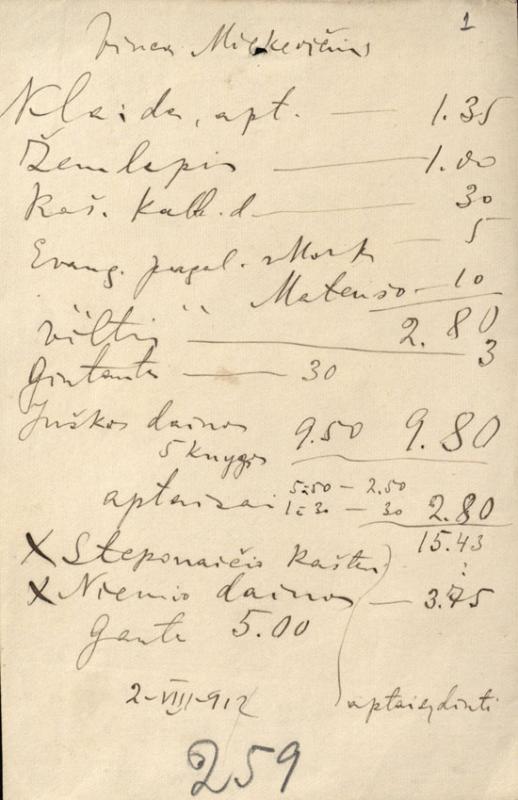 1
Vincas Mickevičius
Klaida, apt. — 1.35
Žemlapis — 1.00
Raš. Kalb. d — 30
Evang. pagal. Mork — 5
" " Mateušo — 10
2.80
viltis — 3
Gintautė — 30
Juškos dainos 9.50 9.80
5 knygos
aptaisai 5 à 50 — 2.50
1 à 30 — 30 2.80
15.43
X Steponaičio Raštu ?
X Niemio dainos — 3.75
Gauta 5.00
2-VIII-912 aptaisydinti
259